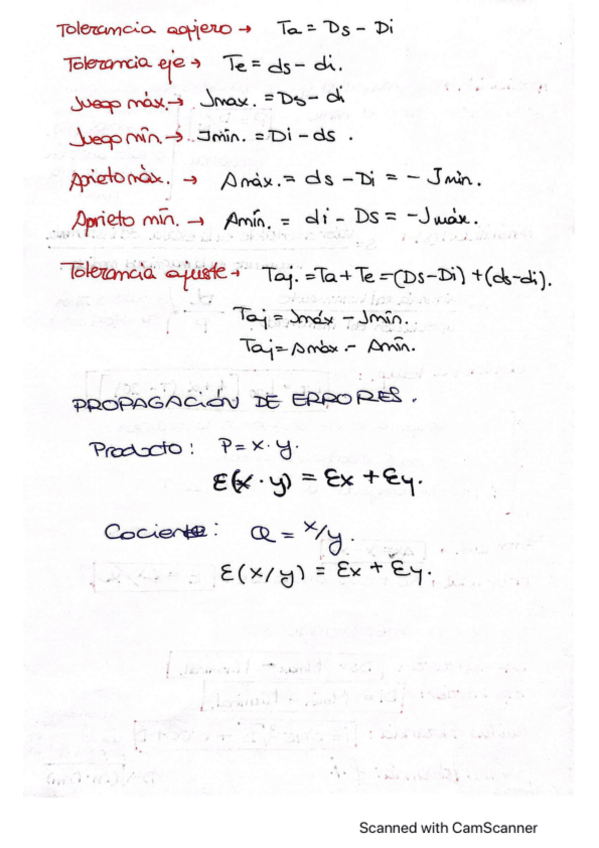 Tolerancia agujero → Ta = Ds - Di
Tolerancia eje → Te = ds - di.
Juego máx. → Jmax. = Ds - di
Juego mín. → Jmin. = Di - ds .
Aprieto máx. → Amáx. = ds - Di = - Jmin.
Aprieto mín. → Amín. = di - Ds = -Jmáx.
Tolerancia ajuste → Taj. = Ta + Te = (Ds-Di) + (ds-di).
Taj = Jmáx - Jmín.
Taj = Amáx - Amín.
PROPAGACIÓN DE ERRORES.
Producto : P = x · y.
Ɛ(x · y) = Ɛx + Ɛy.
Cociente : Q = x/y.
Ɛ(x/y) = Ɛx + Ɛy.
Scanned with CamScanner